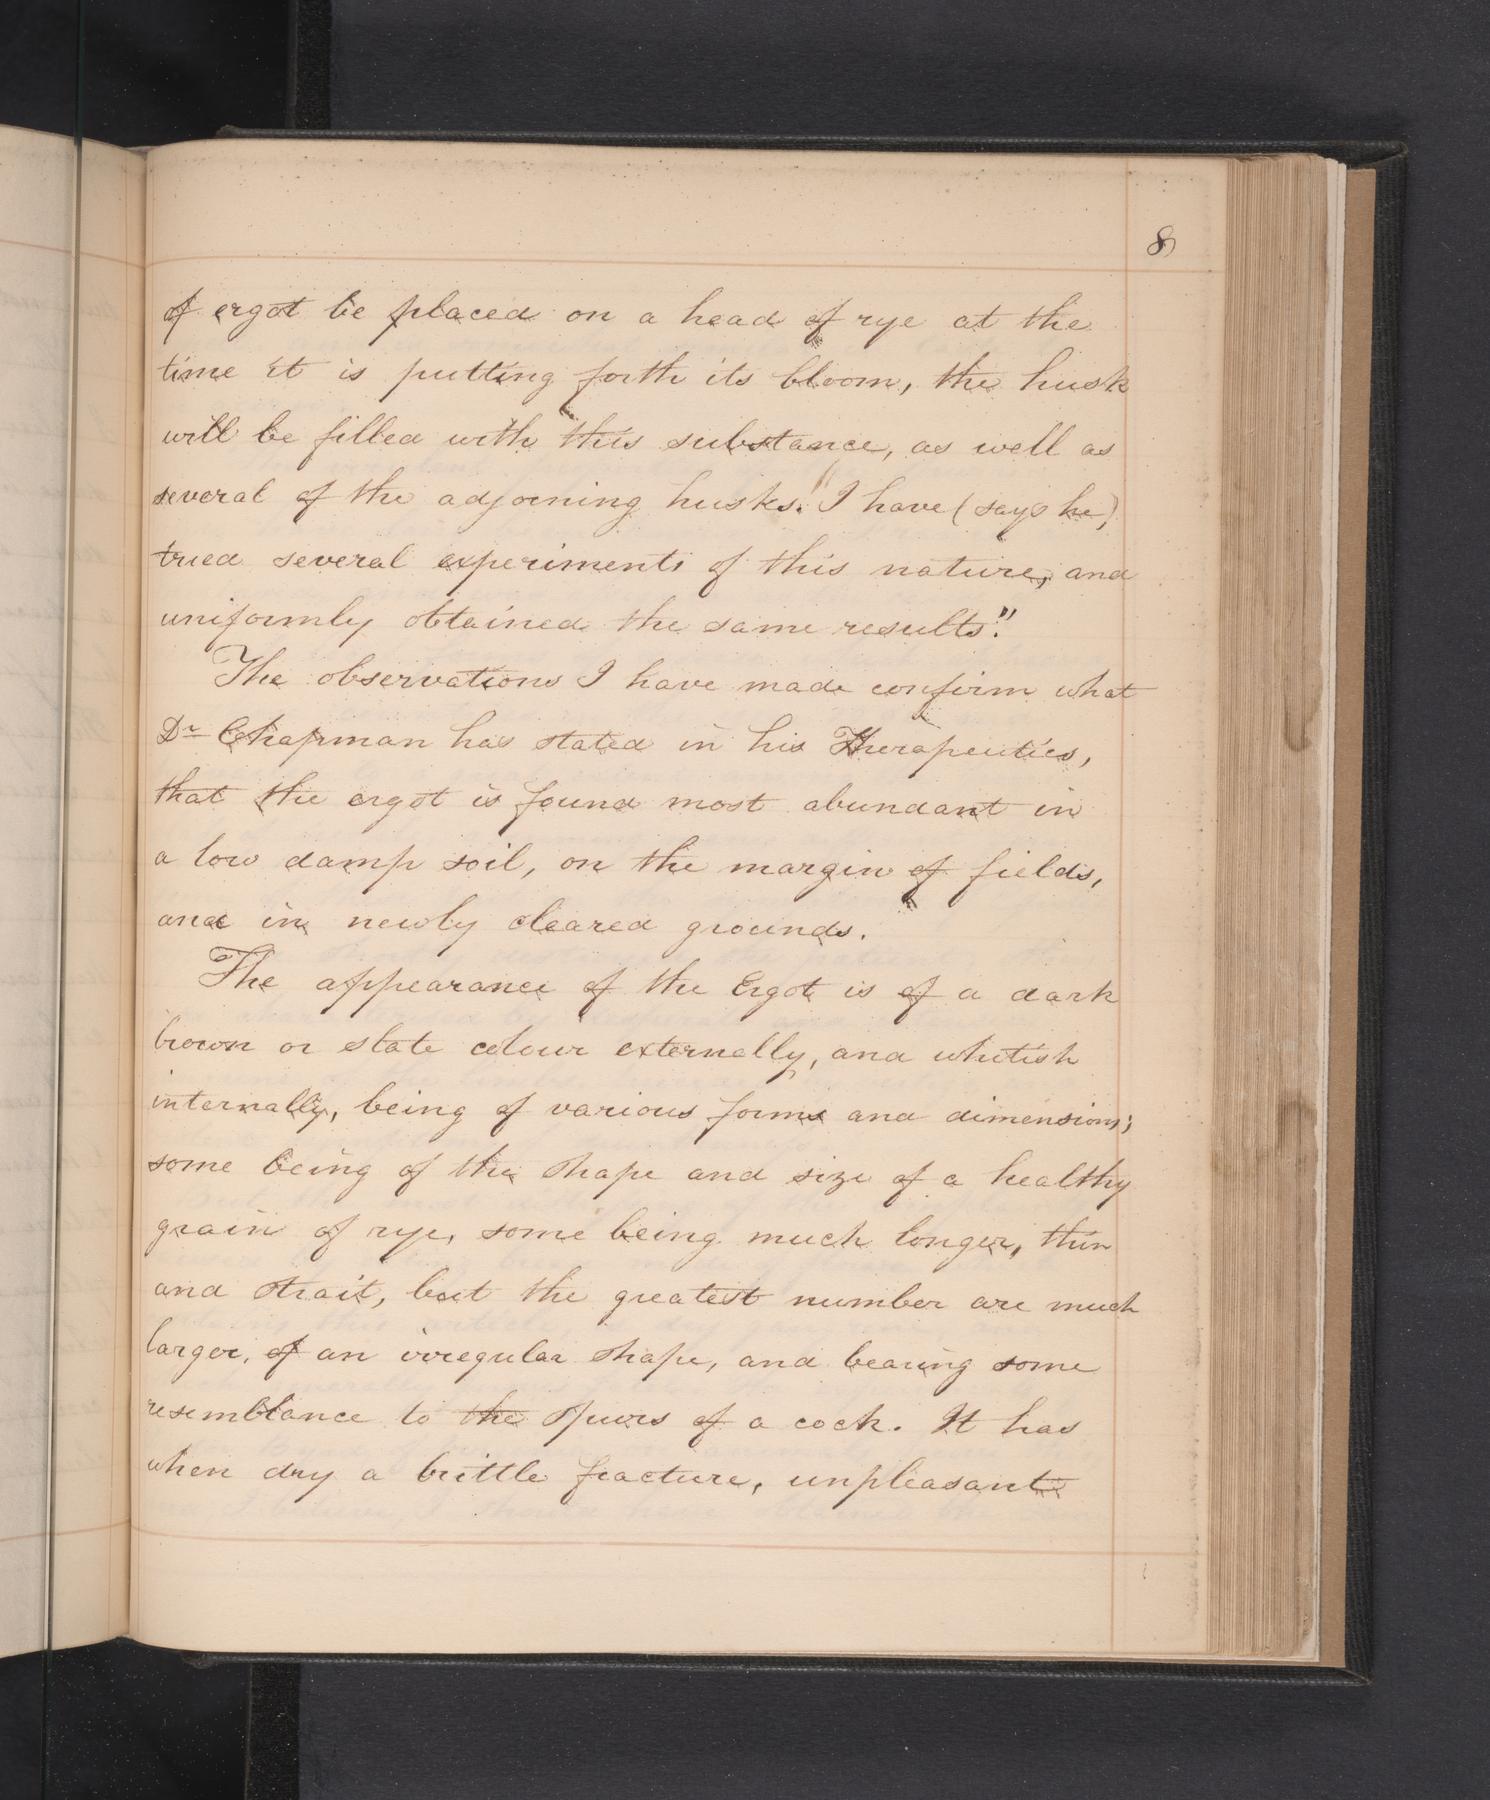 8
of ergot be placed on a head of rye at the
time it is putting forth its bloom, the husk
will be filled with this substance, as well as
several of the adjoining husks. "I have (says he)
tried several experiments of this nature, and
uniformly obtained the same results."
The observations I have made confirm what
Dr Chapman has stated in his Therapeutics,
that the ergot is found most abundant in
a low damp soil, on the margin of fields,
and in newly cleared grounds.
The appearance of the Ergot is of a dark
brown or slate colour externally, and whitish
internally, being of various forms and dimensions;
some being of the shape and size of a healthy
grain of rye, some being much longer, thin
and strait, but the greatest number are much
larger, of an irregular shape, and bearing some
resemblance to the spurs of a cock. It has
when dry a brittle fracture, unpleasant